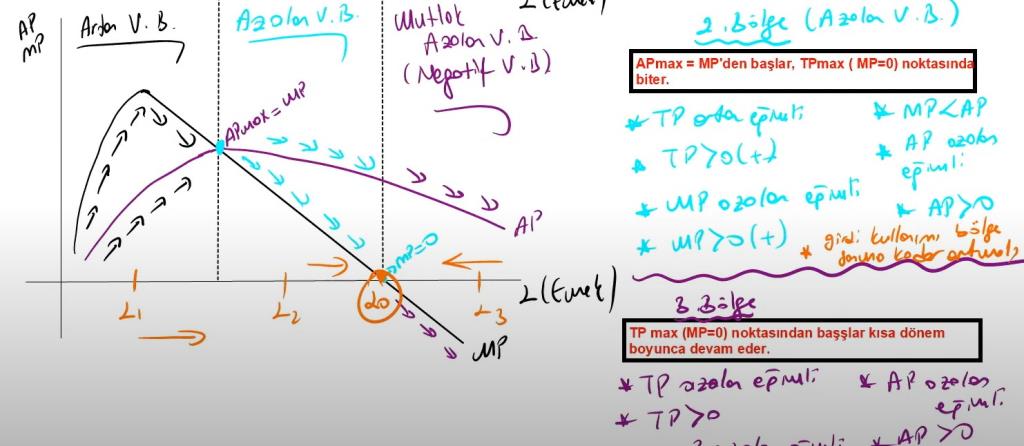 AP
MP
Artan V. B.
Azalan V. B.
Mutlak
Azalan V. B.
(Negatif V. B)
APmax = MP
AP
MP=0
L1
L2
L0
L3
L (Emek)
MP
2. Bölge (Azalan V. B.)
APmax = MP'den başlar, TPmax ( MP=0) noktasında
biter.
* TP artan eğimli
* TP>0(+)
* MP azalan eğimli
* MP>0(+)
* MP<AP
* AP azalan
eğimli
* AP>0
* girdi kullanımı bölge
sonuna kadar artırılır
3. Bölge
TP max (MP=0) noktasından başşlar kısa dönem
boyunca devam eder.
* TP azalan eğimli
* TP>0
* AP azalan
eğimli
* AP>0